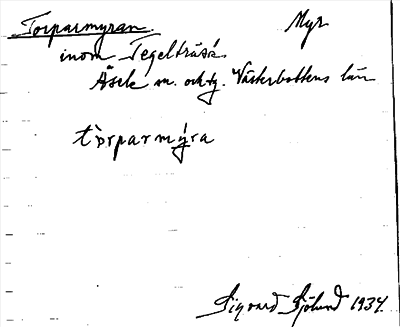 Torparmyran. Myr
inom Tegelträsk
Åsele sn. och tg. Västerbottens län
tòrparmýra
Sigvard Sjölund 1934.